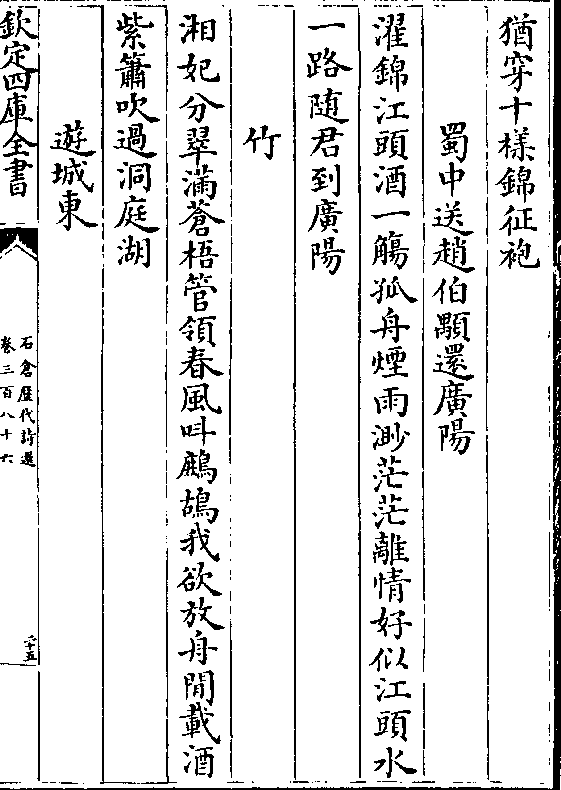 猶穿十様錦征袍
蜀中送趙伯顒還廣陽
濯錦江頭酒一觴孤舟煙雨渺茫茫離情好似江頭水
一路随君到廣陽
竹
湘妃分翠滿蒼梧管領春風呌鷓鴣我欲放舟閒載酒
紫簫吹過洞庭湖
遊城東
欽定四庫全書
石倉歴代詩選
卷三百八十六
二十五